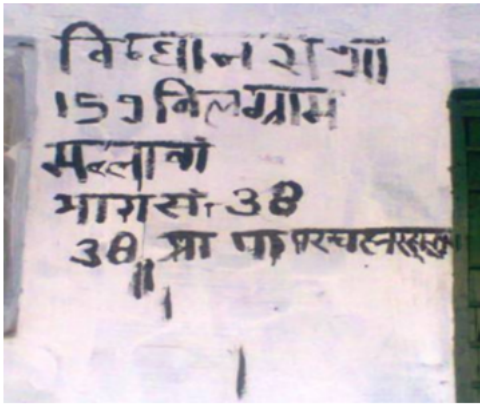 विध्धान सभा
159 विलग्राम
मल्लावां
भाग सं. 38
38 प्रा पा